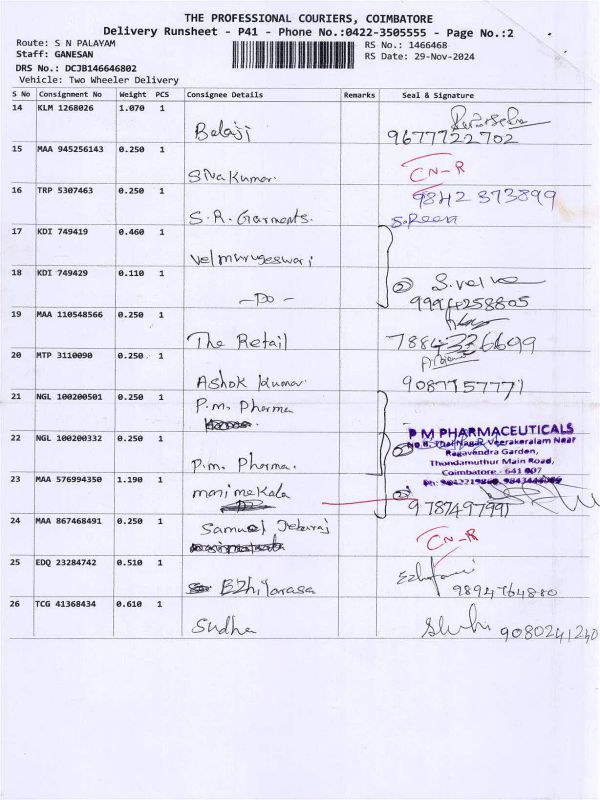 THE PROFESSIONAL COURIERS, COIMBATORE
Delivery Runsheet - P41 - Phone No.:0422-3505555 - Page No.:2
Route: S N PALAYAM
Staff: GANESAN
RS No.: 1466468
RS Date: 29-Nov-2024
DRS No.: DCJB146646802
Vehicle: Two Wheeler Delivery
S No Consignment No Weight PCS Consignee Details Remarks Seal & Signature
14 KLM 1268026 1.070 1
Balaji 9677722702
15 MAA 945256143 0.250 1
Siva Kumar. CN-R
16 TRP 5307463 0.250 1 9842 373899
S.R. Garments.
17 KDI 749419 0.460 1
Velmurugeswari
18 KDI 749429 0.110 1
- Do - 2 9994258805
19 MAA 110548566 0.250 1
The Retail
20 MTP 3110090 0.250 1
Ashok Kumar. 9087757771
21 NGL 100200501 0.250 1
P.m. Pharma
22 NGL 100200332 0.250 1
P.m. Pharma.
P M PHARMACEUTICALS
Veerakeralam Near
Ragavendra Garden,
Thondamuthur Main Road,
Coimbatore - 641 007
23 MAA 576994350 1.190 1
manimekala 9787497991
24 MAA 867468491 0.250 1
Samuel Jebaraj CN-R
25 EDQ 23284742 0.510 1
Ezhilarasa 9894764880
26 TCG 41368434 0.610 1
Sudha 9080241240